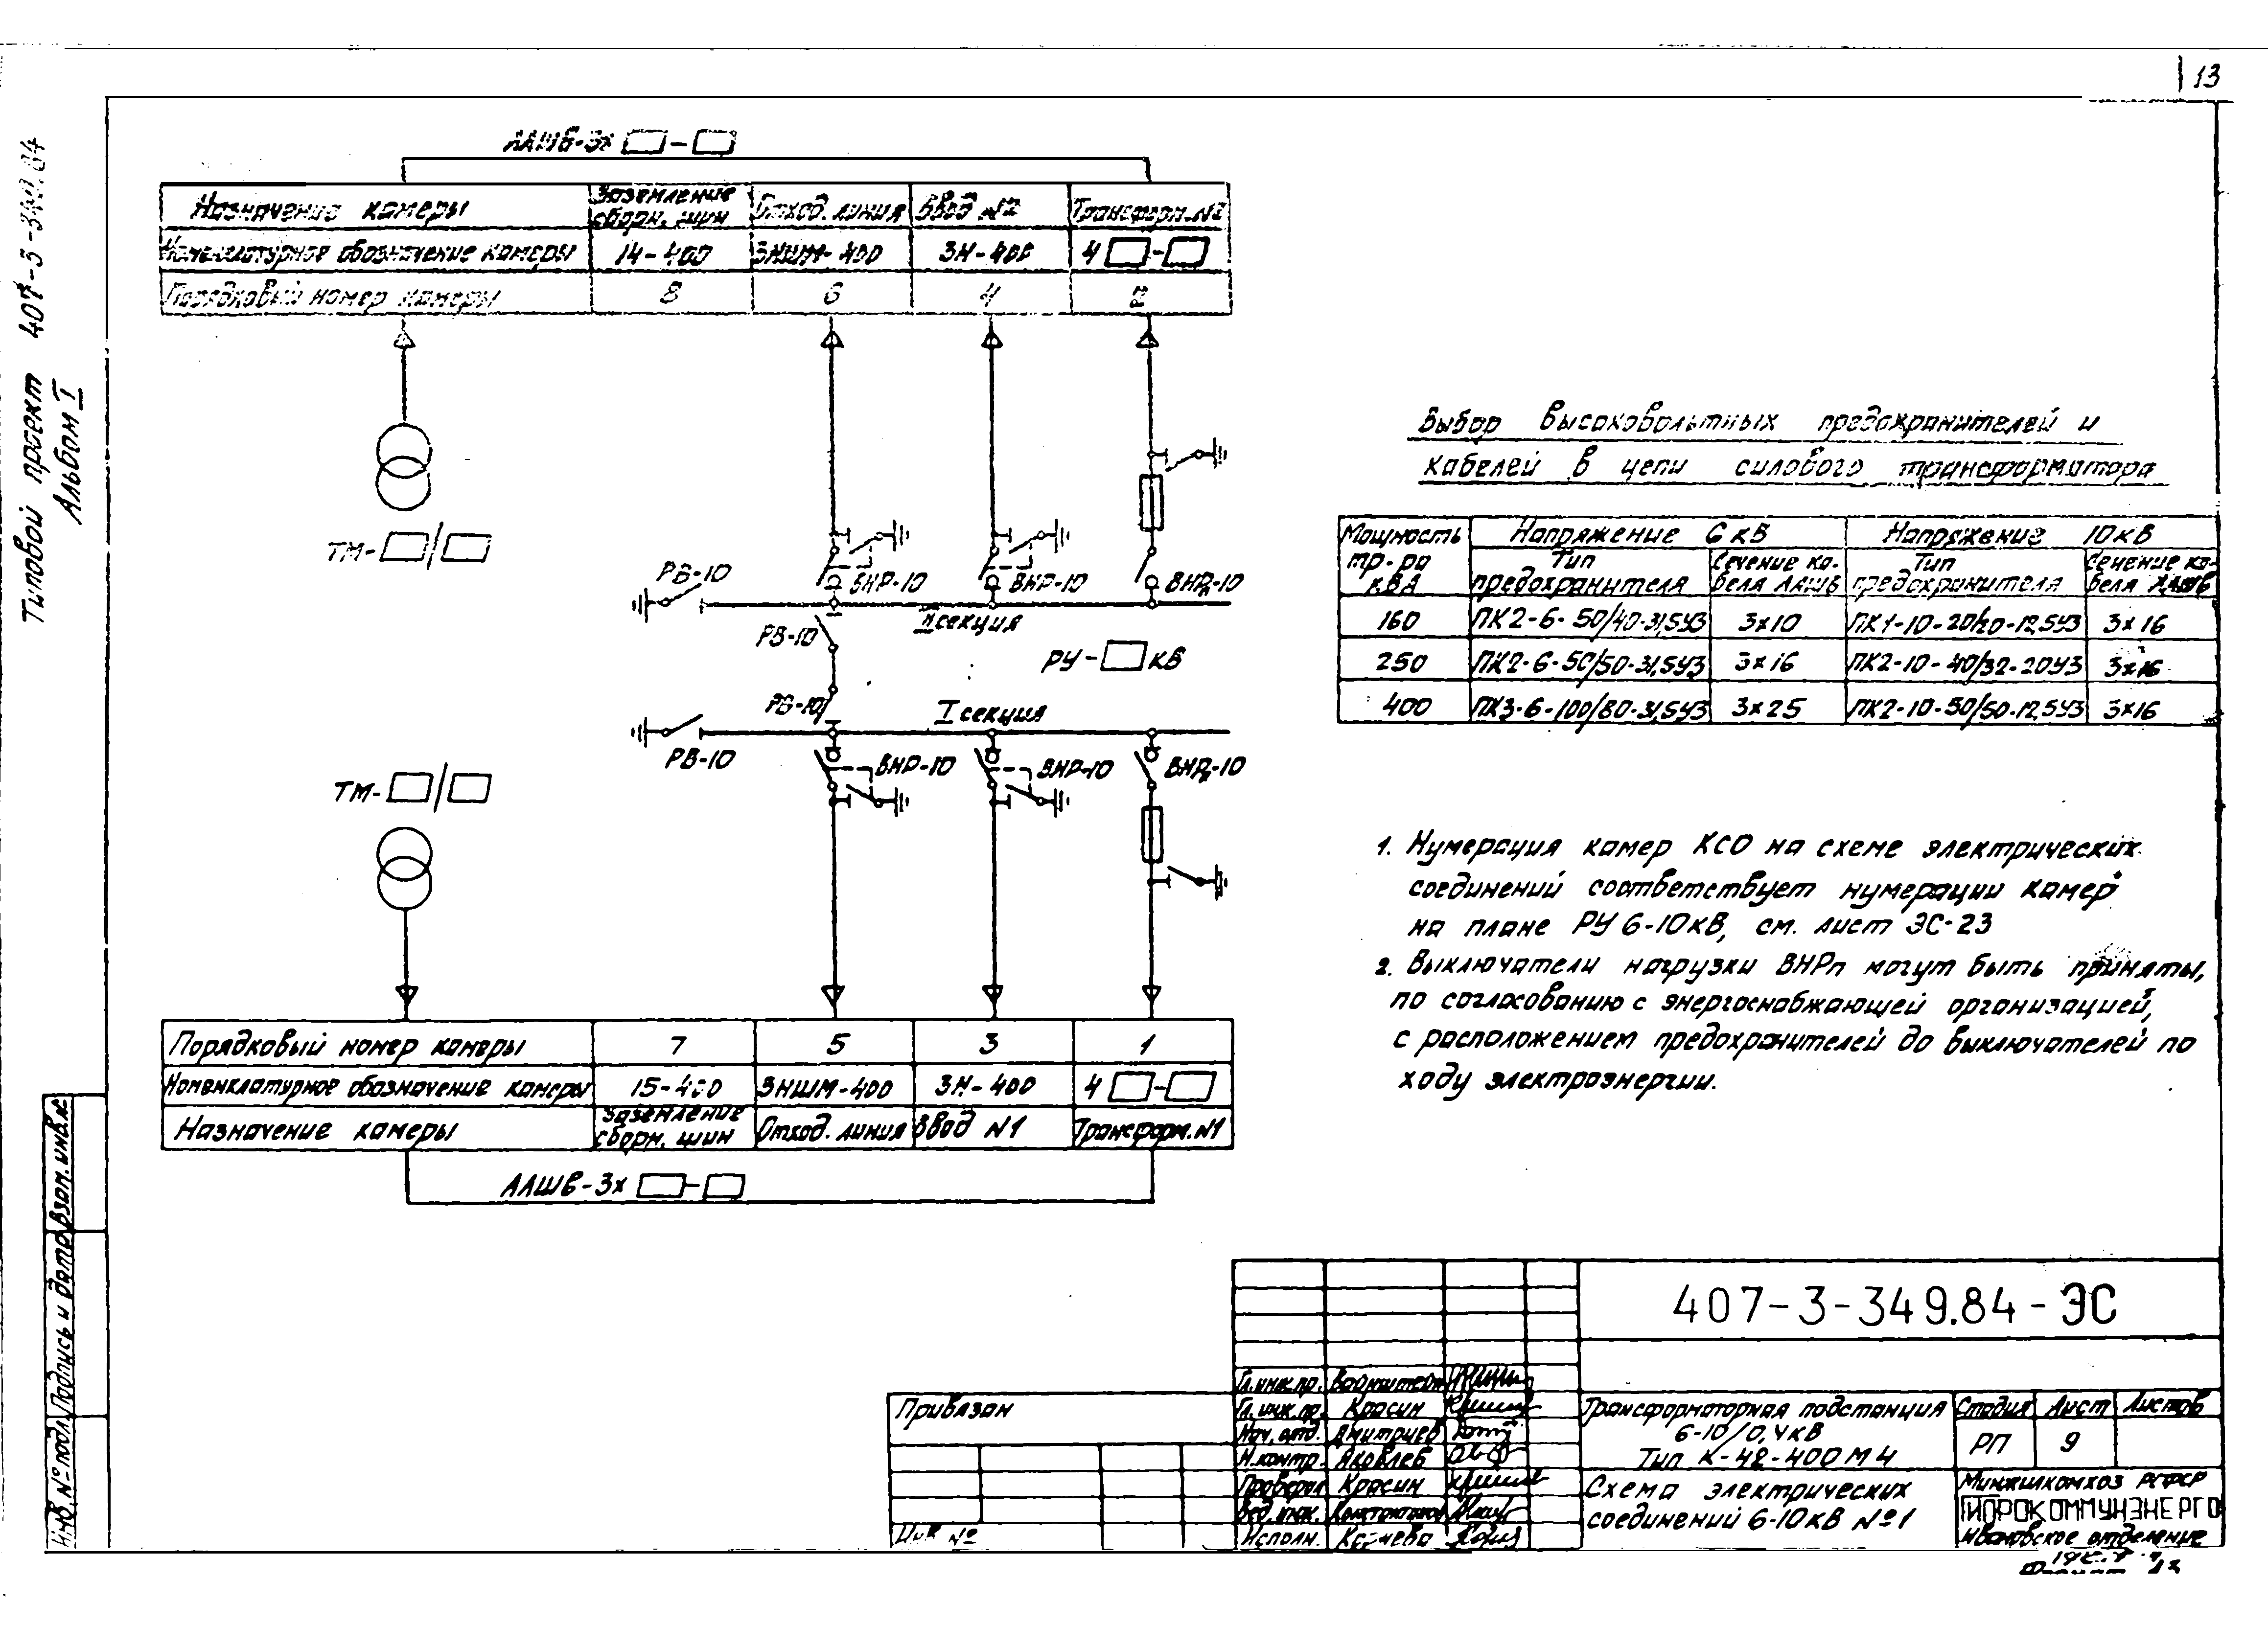 13
Типовой проект 407-3-349.84
Альбом I
ААШВ-3х □-□
Назначение камеры
Заземление сборн. шин
Отход. линия
Ввод №2
Трансформ. №2
Номенклатурное обозначение камеры
14-400
3НШМ-400
3Н-400
4 □-□
Порядковый номер камеры
8
6
4
2
ТМ-□/□
РВ-10
ВНР-10
ВНР-10
ВНРп-10
II секция
РВ-10
РУ-□кВ
РВ-10
I секция
РВ-10
ВНР-10
ВНР-10
ВНРп-10
ТМ-□/□
Порядковый номер камеры
7
5
3
1
Номенклатурное обозначение камеры
15-400
3НШМ-400
3Н-400
4 □-□
Назначение камеры
Заземление сборн. шин
Отход. линия
Ввод №1
Трансформ. №1
ААШВ-3х □-□
Выбор высоковольтных предохранителей и
кабелей в цепи силового трансформатора
Мощность тр-ра кВА
Напряжение 6 кВ
Напряжение 10 кВ
Тип предохранителя
Сечение кабеля ААШВ
Тип предохранителя
Сечение кабеля ААШВ
160
ПК2-6-50/40-31,5У3
3х10
ПК1-10-20/20-12,5У3
3х16
250
ПК2-6-50/50-31,5У3
3х16
ПК2-10-40/32-20У3
3х16
400
ПК3-6-100/80-31,5У3
3х25
ПК2-10-50/50-12,5У3
3х16
1. Нумерация камер КСО на схеме электрических
соединений соответствует нумерации камер
на плане РУ 6-10кВ, см. лист ЭС-23
2. Выключатели нагрузки ВНРп могут быть приняты,
по согласованию с энергоснабжающей организацией,
с расположением предохранителей до выключателей по
ходу электроэнергии.
407-3-349.84-ЭС
Гл. инж. пр.
Гл. инж. пр. Красин
Нач. отд. Дмитриев
Н. контр. Яковлев
Проверил Красин
Вед. инж.
Исполн.
Привязан
Инв №
Трансформаторная подстанция
6-10/0,4кВ
Тип К-42-400 М4
Стадия
Лист
Листов
РП
9
Схема электрических
соединений 6-10кВ №1
Минжилкомхоз РСФСР
ГИПРОКОММУНЭНЕРГО
Ивановское отделение
Инв. № подл.
Подпись и дата
Взам. инв. №